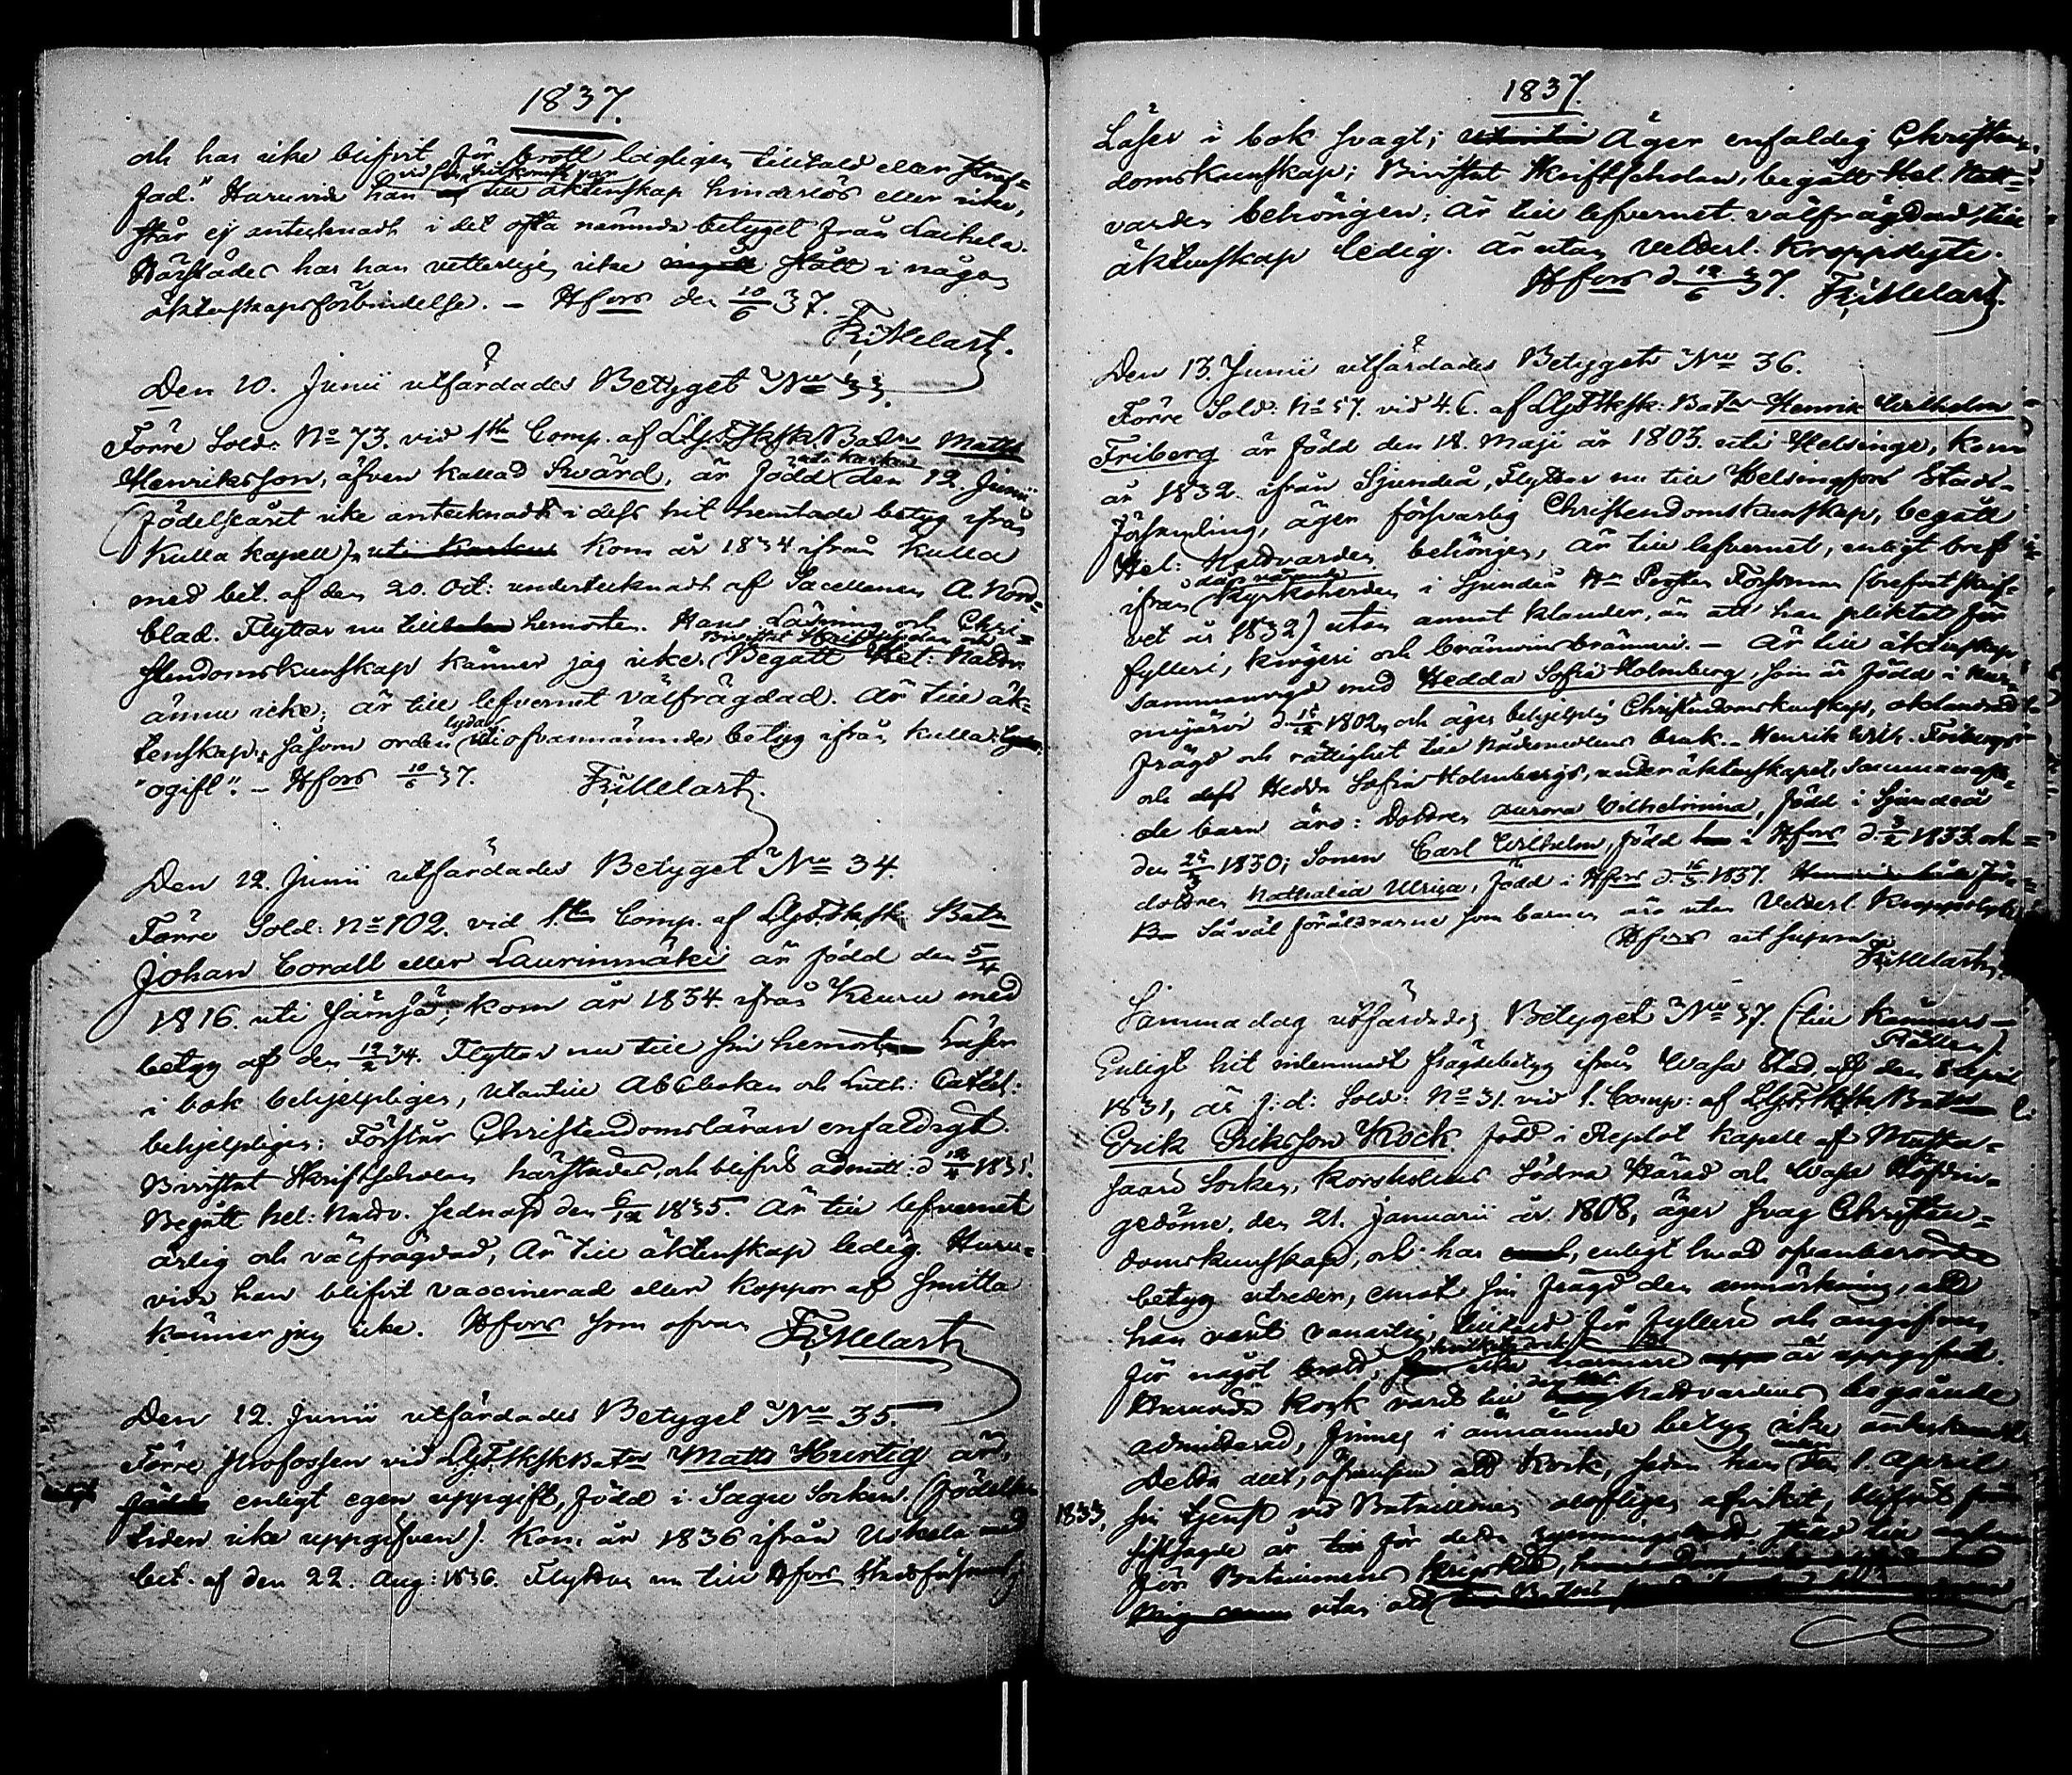 1837.
och har icke blifvit för brott lagligen tilltalad eller straf-
fad." Huruvida han vid sin hitkomst var till äktenskap hinderlös eller icke,
står ej antecknadt i det ofta nämnda betyget från Laihela.
Härstädes har han vetterligen icke stått i någon
äktenskapsförbindelse. – Hfors den 10/6 37.
Fr: Melart.
Den 10. Junii utfärdades Betyget No 33.
Förre Sold: No 73. vid 1sta Comp. af LGdFskSk. Batn Matts
Henriksson, äfven kallad Svärd, är född uti Karkku den 12. Junii
(födelseåret icke antecknadt i dess hit hemtade betyg ifrån
Kulla kapell), uti Karkku kom år 1834 ifrån Kulla
med bet. af den 20. Oct: undertecknadt af Sacellanen A. Nord-
blad. Flyttar nu till hemorten. Hans Läsning och Chri-
stendomskunskap känner jag icke. Bivistat Skriftskolan och Begått Hel: Nattv.
ännu icke; är till lefvernet välfrägdad. Är till äk-
tenskap, såsom orden lyda uti ofvannämnde betyg ifrån Kulla:
"ogift". – Hfors 10/6 37. Fr: Melart.
Den 12. Junii utfärdades Betyget No 34.
Förre Sold: No 102. vid 1sta Comp. af LGdFskSk. Batn
Johan Corall eller Laurinmäki är född den 5/4
1816. uti Jämsä, kom år 1834. ifrån Keuru med
betyg af den 12/2 34. Flyttar nu till sin hemort. Läser
i bok behjelpligen, utantill Abcboken och Luth: Catech:
behjelpligen; Förstår Christendomsläran enfaldigt.
Bivistat Skriftskolan härstädes, och blifvit admitt. d 12/4 1835.
Begått hel: Nattv. sednast den 6/12 1835. Är till lefvernet
ärlig och välfrägdad, Är till äktenskap ledig. Huru-
vida han blifvit vaccinerad eller koppor af smitta
känner jag icke. Hfors som ofvan Fr: Melart
Den 12. Junii utfärdades Betyget No 35.
Förre Profossen vid LGdFskSkBatn Matts Hurtig är,
enligt egen uppgift, född i Sagu Socken. (Födelse-
tiden icke uppgifven). Kom år 1836 ifrån Uskela med
bet. af den 22. Aug: 1836. Flyttar nu till Hfors Stadsförsaml:
1837.
Läser i bok svagt; Äger enfaldig Christen-
domskunskap; Bivistat Skriftskolan, begått Hel. Natt-
varden behörigen; är till lefvernet välfrägdad, till
äktenskap ledig. Är utan veterl. kroppslyte.
Hfors d. 12/6 37. Fr: Melart.
Den 13. Junii utfärdades Betyget No 36.
Förre Sold: No 57. vid 4. C. af LGdFskSk: Batn Henrik Wilhelm
Friberg är född den 18. Maji år 1803. uti Helsinge, kom
år 1832. ifrån Sjundeå, Flyttar nu till Helsingfors Stads-
församling, äger försvarlig Christendomskunskap, begått
Hel: Nattvarden behörigen, är till lefvernet, enligt bref
ifrån då varande Kyrkoherden i Sjundeå Hr Forsman (brefvet skrif-
vet år 1832) utan annat klander, än att han pliktat för
fylleri, krögeri och bränvinsbränneri. – Är till äktenskap
sammanvigd med Hedda Sofia Holmberg, som är född i
d. 15/12 1802, och äger behjelplig Christendomskunskap, oklandrad
frägd och rättighet till Nådemedlens bruk. – Henrik Wilh. Fribergs
och Hedda Sofia Holmbergs, under äktenskapet, sammanafla-
de barn äro: dottren Aurora Wilhelmina, född i Sjundeå
den 25/3 1830; Sonen Carl Wilhelm, född i Hfors d. 3/2 1833. och
dottren Nathalia Ulrica, född i Hfors d. 16/3 1837.
Så väl föräldrarne som barnen äro utan Vetterl. Kroppslyte
Hfors ut supra.
Fr: Melart.
Samma dag utfärdades Betyget No 37. (till Kämners-
Rätten).
Enligt hit inlemnadt frägdebetyg ifrån Wasa Stad, af den 8 April
1831, är f. d: Sold. No 31. vid 1. Comp: af LGdFskSk Batn
Erik Eriksson Kock född i Replot kapell af Mussta-
saari Socken, Korsholms Södra Härad och Wasa Höfdin-
gedöme, den 21. Januarii år 1808, äger svag Christen-
domskunskap, och har, enligt hvad ofvanberörde
betyg utreder, emot sin frägd den anmärkning, att
han varit tilltald för fylleri och angifven
för något brott, hvilket icke närmare är uppgifvet.
Huruvida Kock varit till Nattvardens begående
admitterad, finnes i nämnde betyg icke antecknadt.
Detta allt, äfvensom att Kock, sedan han den 1 April
1833, sin tjenst vid Bataillonen olofligen afvikit, blifvit
för Bataillonens Krigsrätt,
utan att